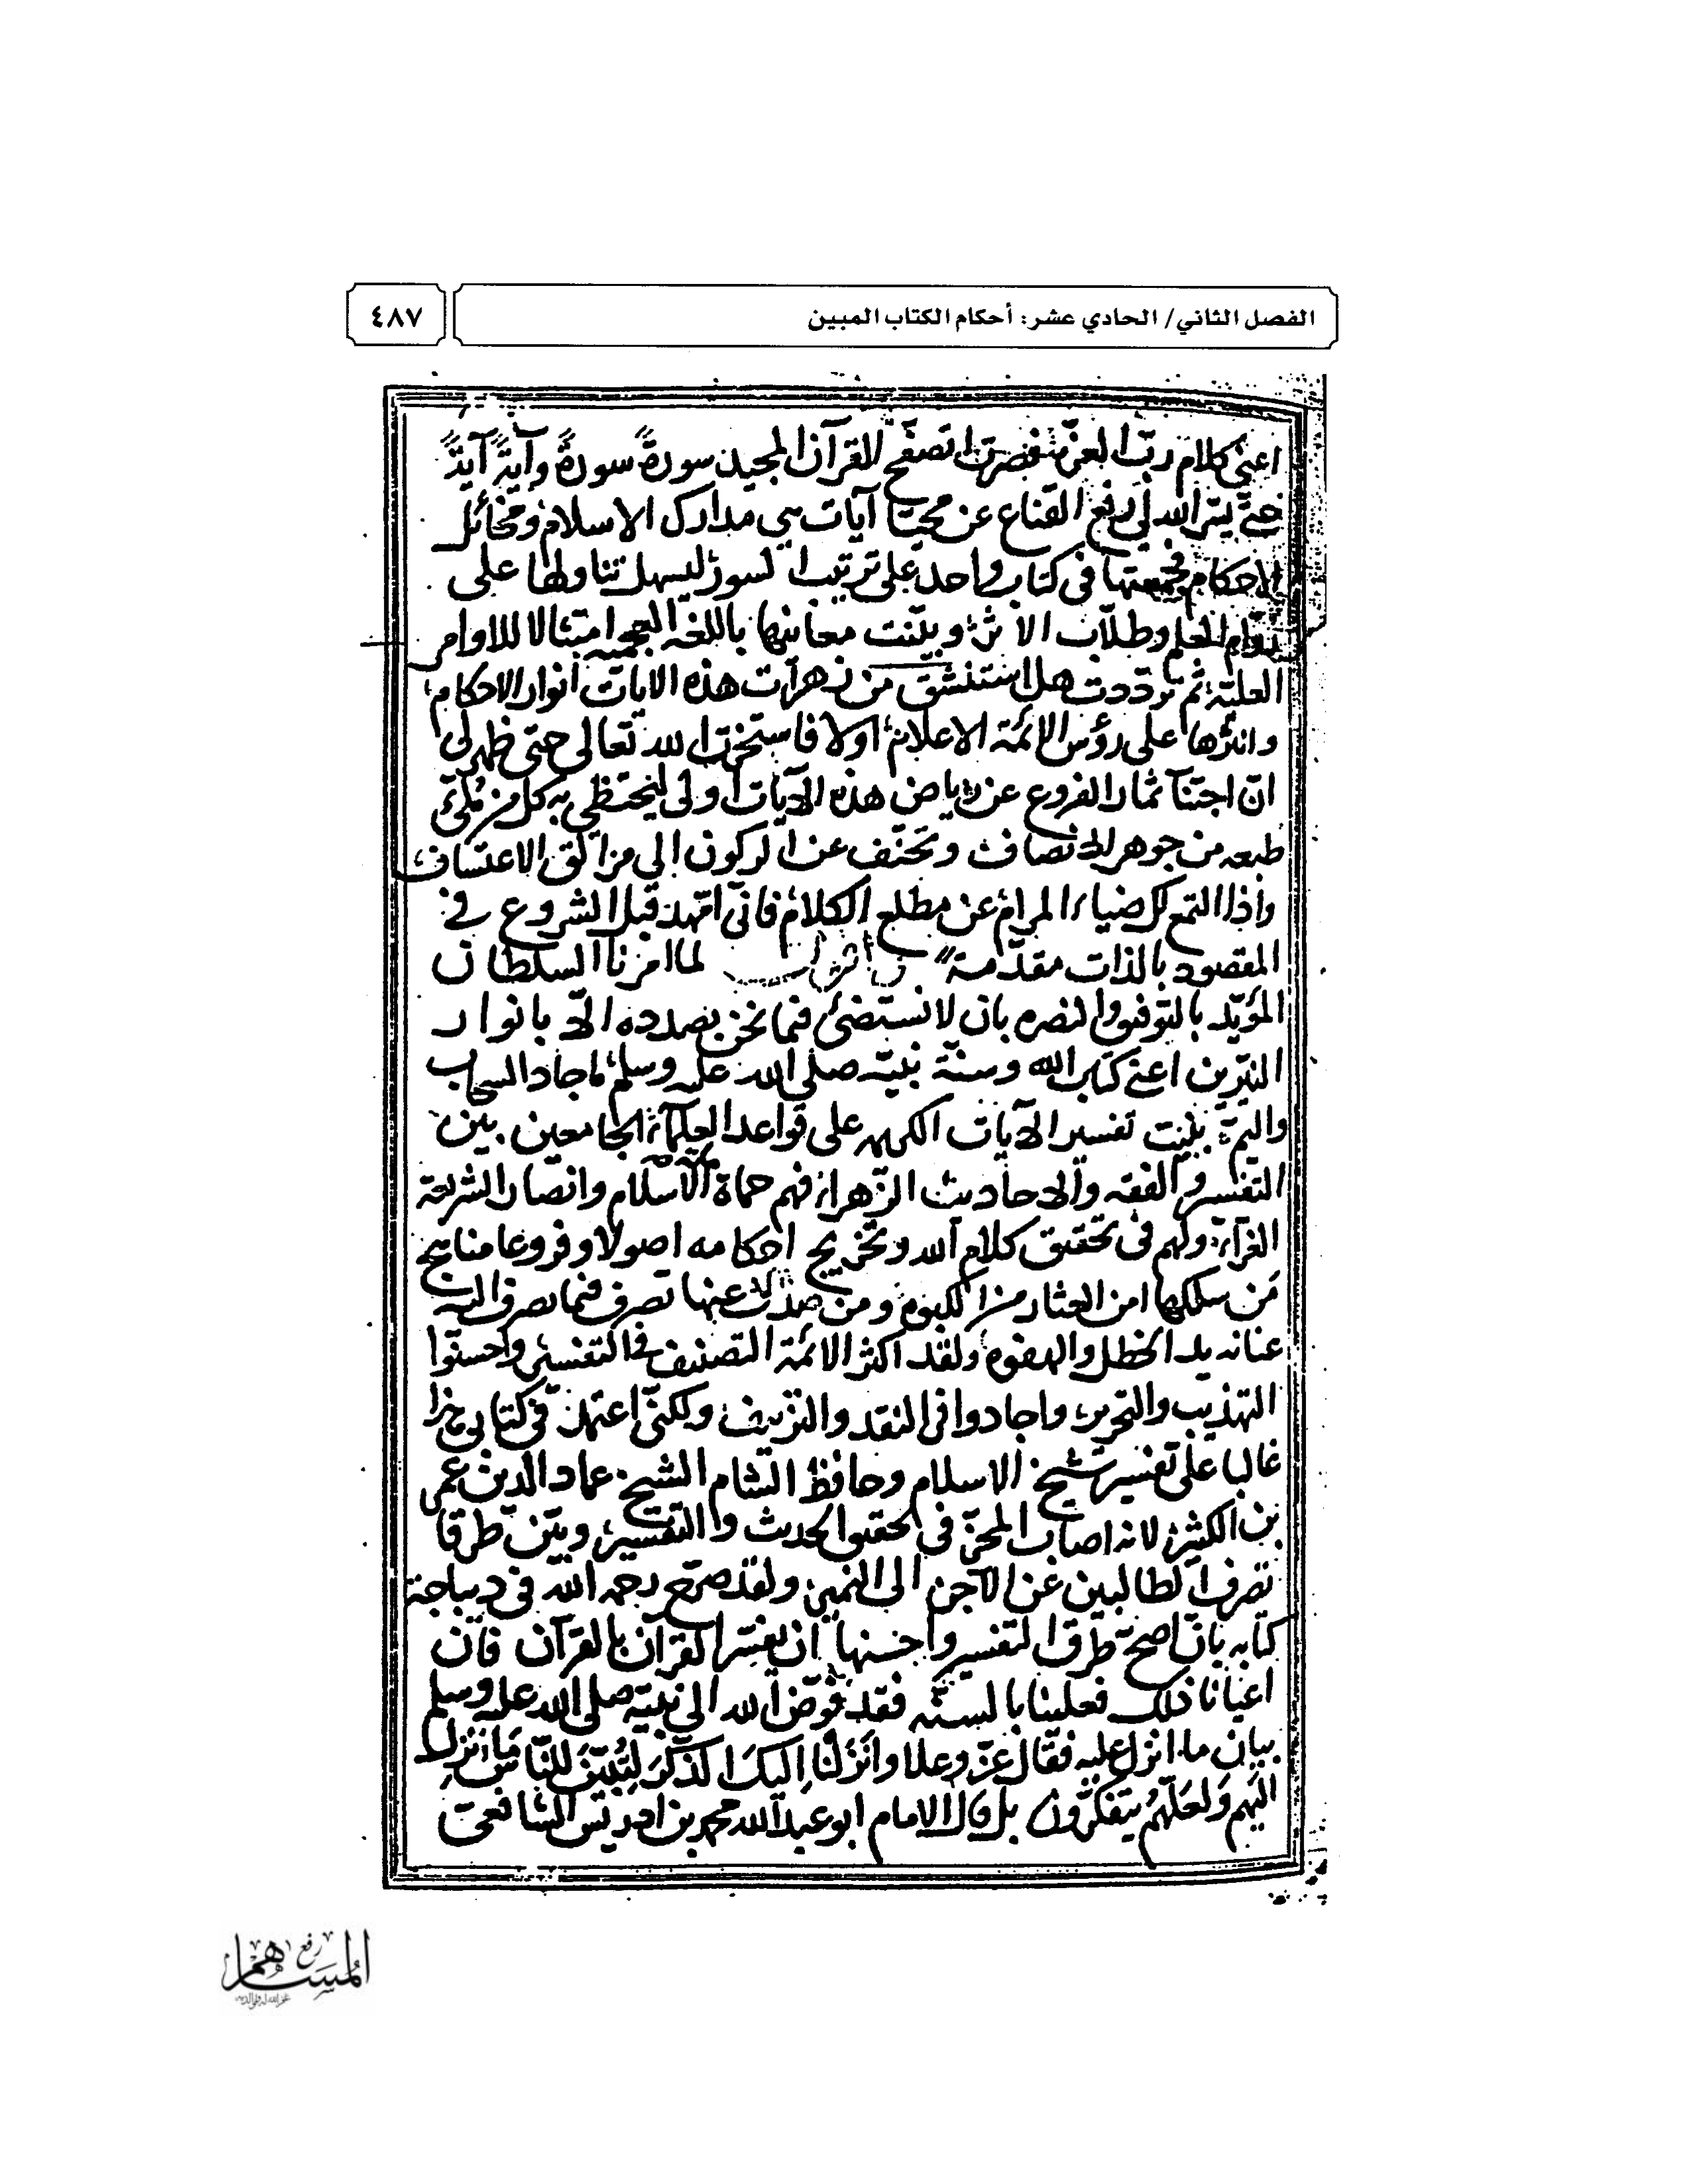 الفصل الثاني/ الحادي عشر: أحكام الكتاب المبين
٤٨٧
اعنى كلام ربّ العزّة فصرت اتصفّح القرآن المجيد سورةً سورةً وآيةً آيةً
حتّى يسّر الله لى رفع القناع عن محيّا آيات هى مدارك الاسلام ومخائل
الاحكام فجمعتها فى كتاب واحد على ترتيب السور ليسهل تناولها على
العلم وطلّاب الاثر وبيّنت معانيها باللغه العجميه امتثالا للاوامر
العليّة ثم تردّدت هل استنشق من زهرآت هذه الايات انوار الاحكام
وانثرها على رؤس الائمّة الاعلام اولا فاستخرت الله تعالى حتى ظهر لى
انّ اجتنآ ثمار الفروع عن رياض هذه الآيات اولى ليحتظى به كل من
طبعه من جوهر الانصاف وتحنّف عن الركون الى مزالق الاعتساف
واذا التمع لك ضياء المرام عن مطلع الكلام فانّى امهّد قبل الشروع فى
المقصود بالذات مقدّمة لما امرنا السلطان
المؤيّد بالتوفيق والنصره بان لا نستضئ فيما نحن بصدده الّا بانوار
النيّرين اعنى كتاب الله وسنّة نبيّه صلى الله عليه وسلم ما جاد السحاب
واليمّ بيّنت تفسير الآيات الكريمه على قواعد العلمآء الجامعين بين
التفسير والفقه والاحاديث الزهراء فهم حماة الاسلام وانصار الشريعة
الغرآء ولهم فى تحقيق كلام الله وتخريج احكامه اصولا وفروعا مناهج
مَن سلكها امن العثار من الكبوه ومن عنها تصرف فيما يصرف اليه
عنانه يد الخطل والهفوه ولقد اكثر الائمّة التصنيف فى التفسير واحسنوا
التهذيب والتحرير واجادوا فى النقد والتزييف ولكنّى اعتمد فى كتابى هذا
غالبا على تفسير شيخ الاسلام وحافظ الشام الشيخ عماد الدين عمر
بن الكثير لانه اصاب المحزّ فى تحقيق الحديث والتفسير وبيّن طرقا
تصرف الطالبين عن الآجن الى النمير ولقد صرّح رحمه الله فى ديباجة
كتابه بانّ اصحّ طرق التفسير واحسنها ان يفسّر القرآن بالقرآن فان
اعيانا ذلك فعلينا بالسنّه فقد فوّض الله الى نبيّه صلى الله عليه وسلم
بيان ما انزل عليه فقال عزّ وعلا وانزَلنا اليكَ الذكرَ لِتُبيّنَ للنّاسِ ما نزل
اليهم ولعلّهُم يتفكّرون بل قال الامام ابو عبد الله محمد بن ادريس الشافعى